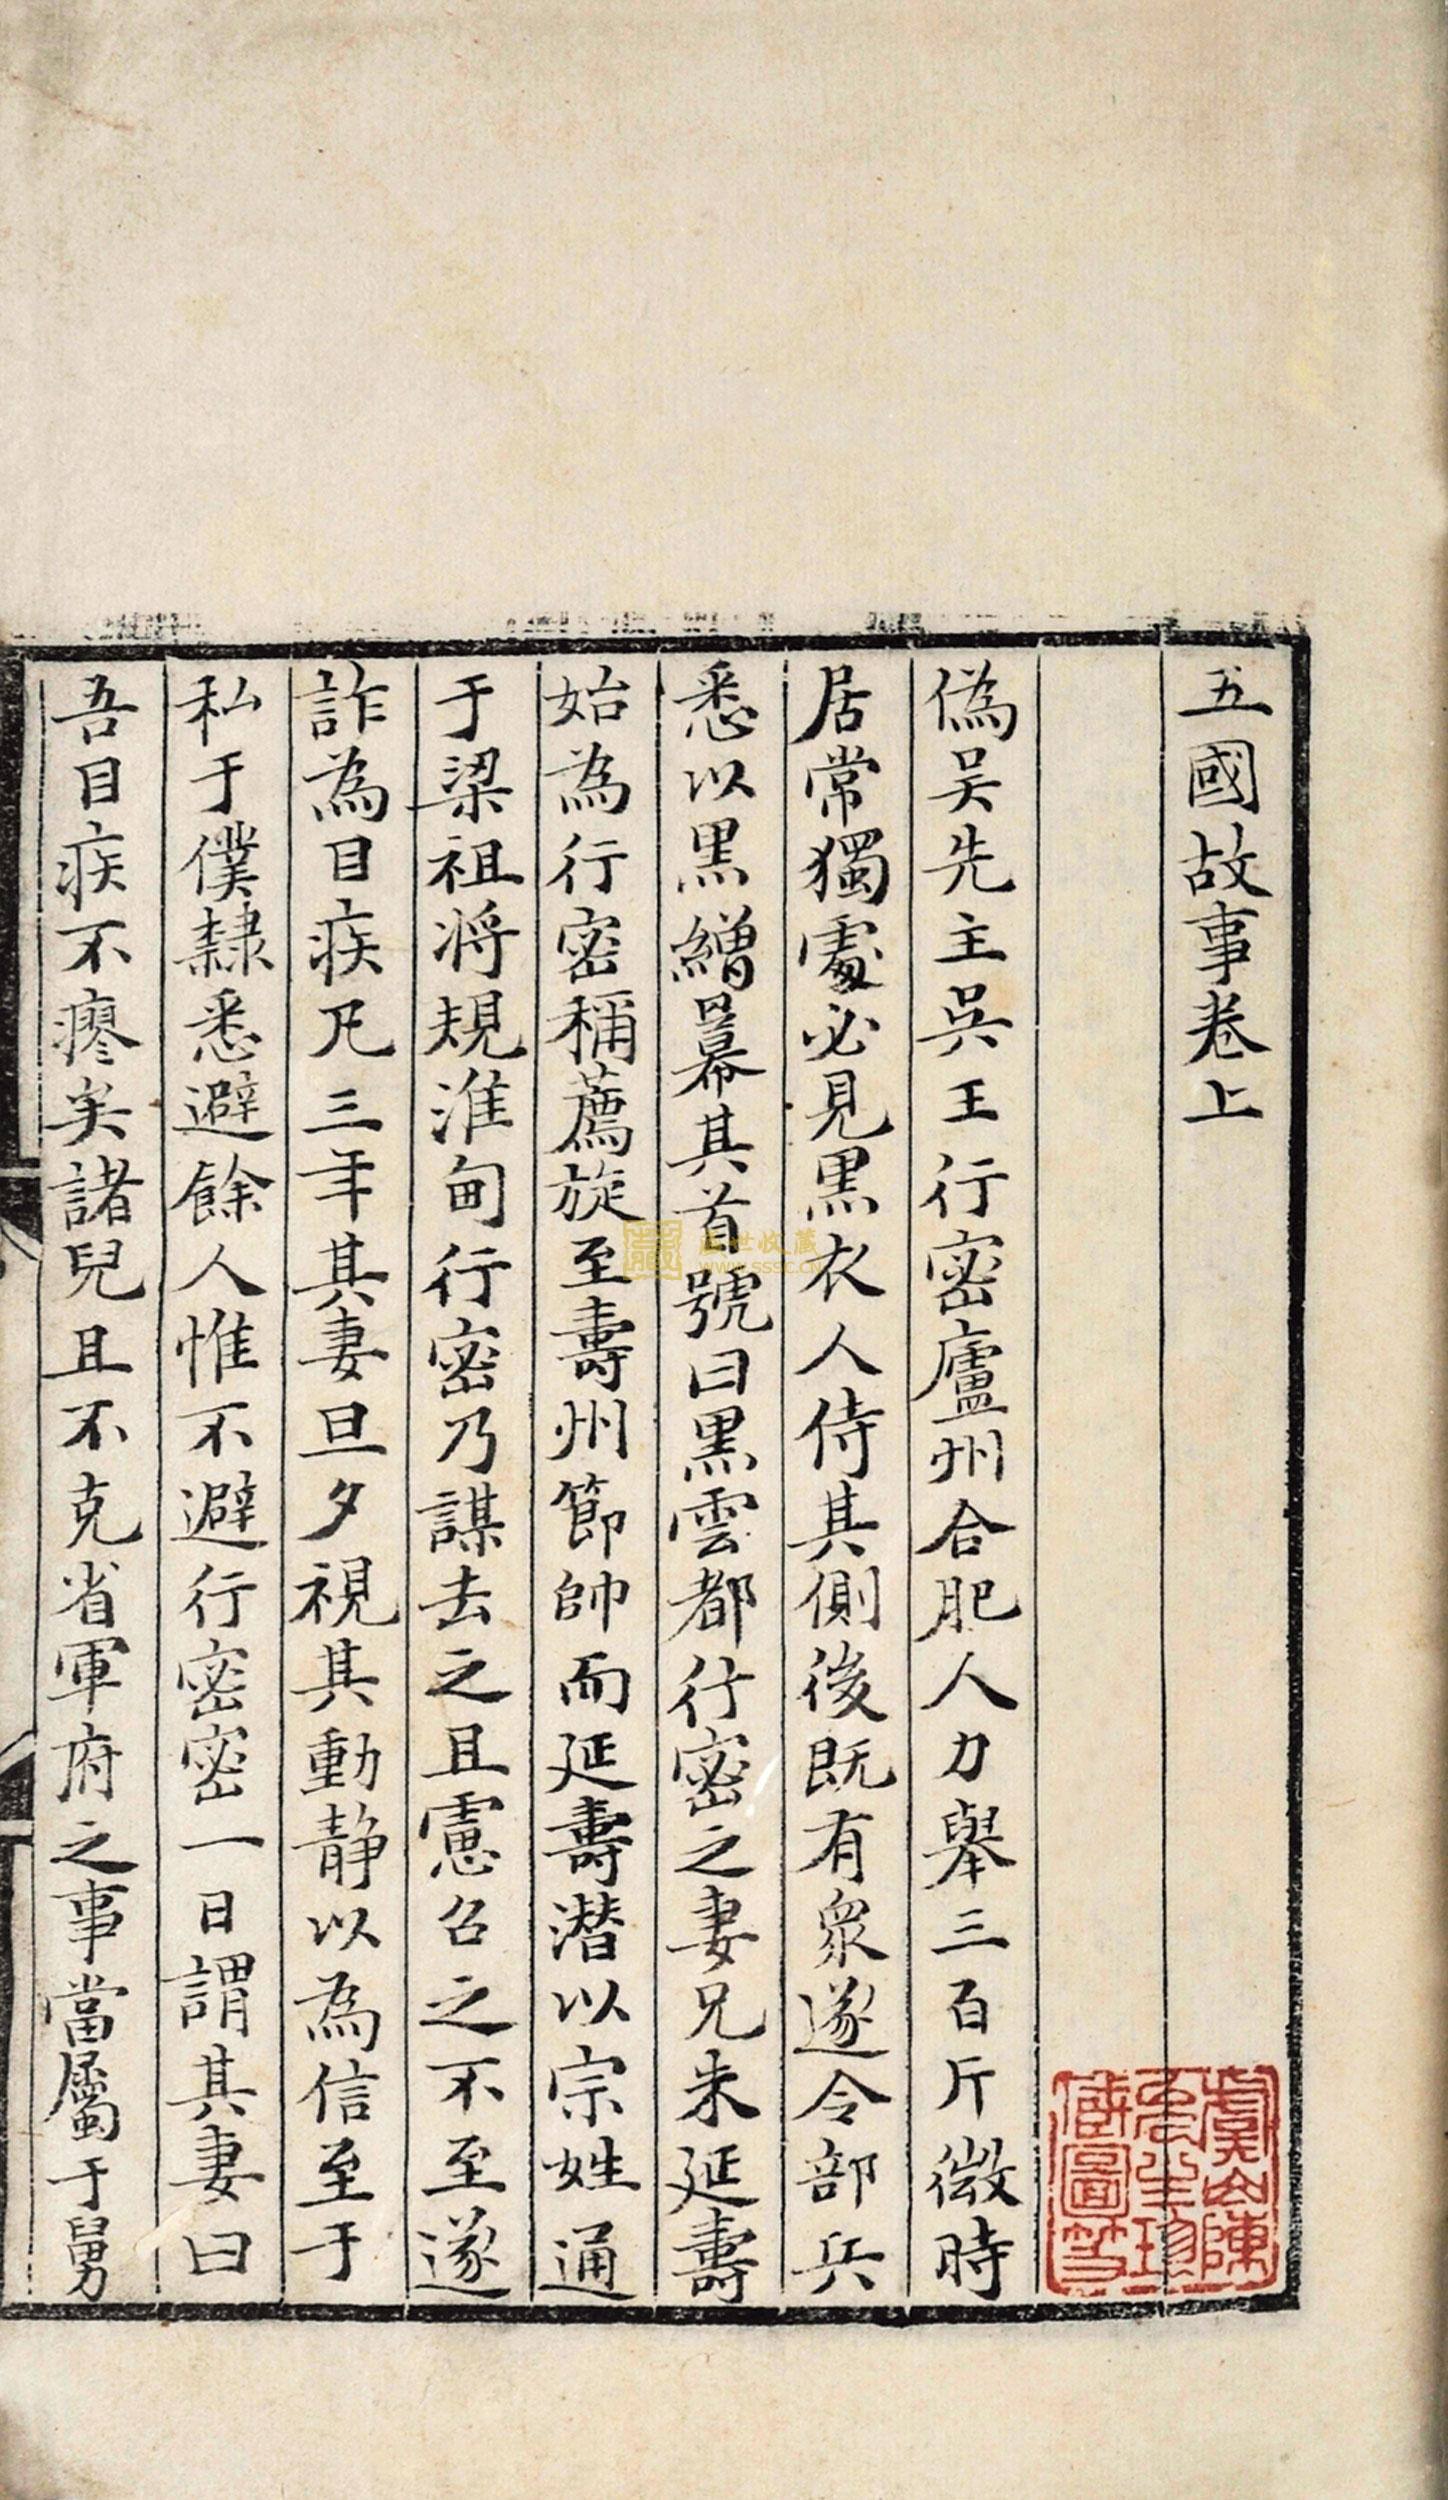 五國故事卷上
偽吳先主吳王行密廬州合肥人力舉三百斤微時
居常獨處必見黒衣人侍其側後既有衆遂令部兵
悉以黒繒羃其首號曰黒雲都行密之妻兄朱延壽
始為行密稱薦旋至壽州節帥而延壽潜以宗姓通
于梁祖将規淮甸行密乃謀去之且慮召之不至遂
詐為目疾凡三年其妻旦夕視其動静以為信至于
私于僕隸悉避餘人惟不避行密密一日謂其妻曰
吾目疾不瘳矣諸兒且不克省軍府之事當屬于舅
虞山陳
珍
圖
世收藏